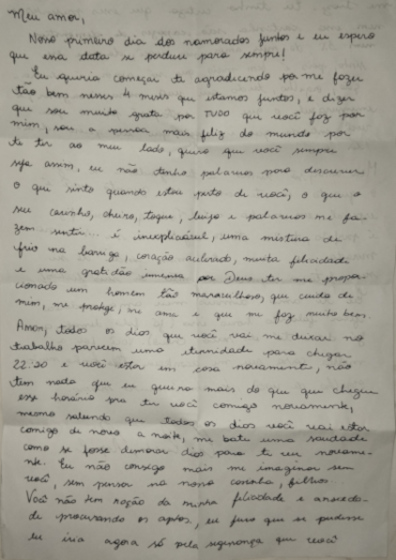 Meu amor,
Nosso primeiro dia dos namorados juntos e eu espero
que essa data se perdure para sempre!
Eu queria começar te agradecendo por me fazer
tão bem nesses 4 meses que estamos juntos, e dizer
que sou muito grata por TUDO que você faz por
mim, sou a pessoa mais feliz do mundo por
te ter ao meu lado, quero que você sempre
seja assim, eu não tenho palavras para descrever
o que sinto quando estou perto de você, o que o
seu carinho, cheiro, toque, beijo e palavras me fa-
zem sentir... é inexplicável, uma mistura de
frio na barriga, coração acelerado, muita felicidade
e uma gratidão imensa por Deus ter me propor-
cionado um homem tão maravilhoso, que cuida de
mim, me protege, me ama e que me faz muito bem.
Amor, todos os dias que você vai me deixar no
trabalho parecem uma eternidade para chegar
22:30 e você estar em casa novamente, não
tem nada que eu queira mais do que que chegue
esse horário pra ter você comigo novamente,
mesmo sabendo que todos os dias você vai estar
comigo de novo a noite, me bate uma saudade
como se fosse demorar dias para te ver novame-
nte. Eu não consigo mais me imaginar sem
você, sem pensar na nossa casinha, filhos...
Você não tem noção da minha felicidade e ansieda-
de procurando os aptos, eu juro que se pudesse
eu iria agora só pela segurança que você